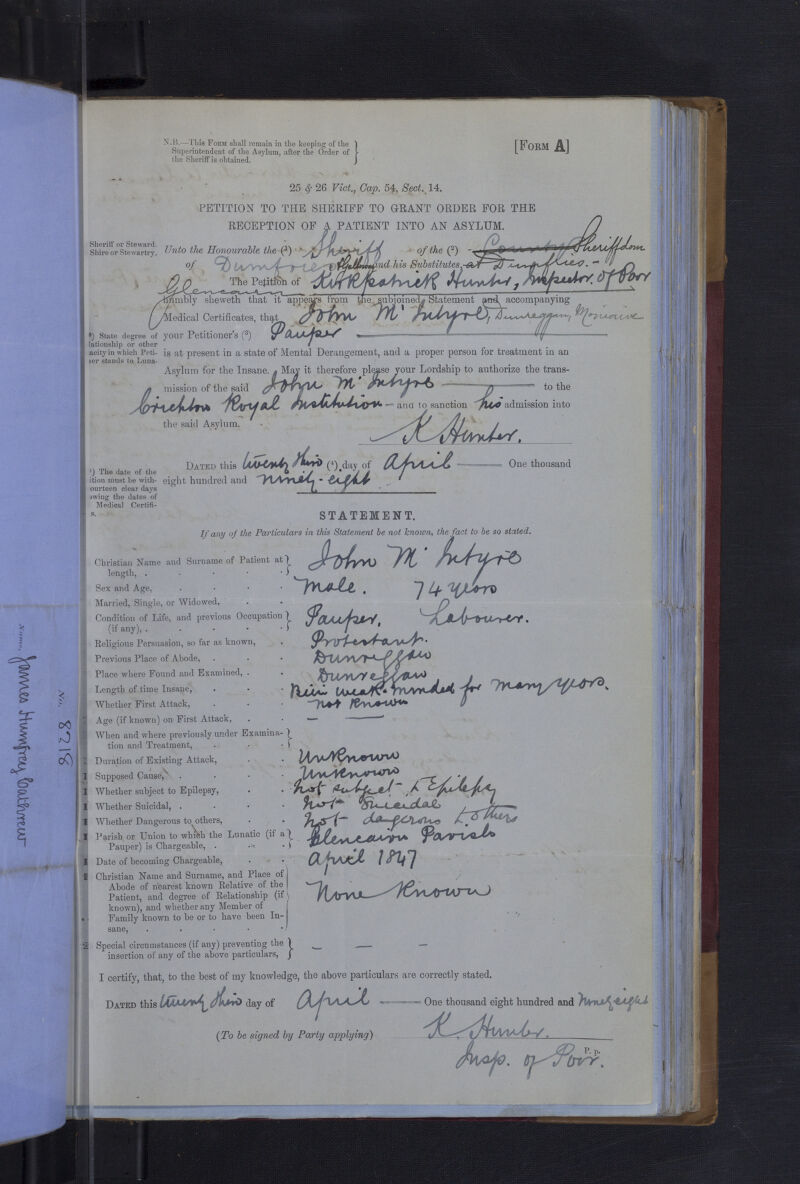 N.B.—This Form shall remain in the keeping of the
Superintendent of the Asylum, after the Order of
the Sheriff is obtained.
[Form A]
25 & 26 Vict., Cap. 54, Sect. 14.
PETITION TO THE SHERIFF TO GRANT ORDER FOR THE
RECEPTION OF A PATIENT INTO AN ASYLUM.
Sheriff or Steward.
Shire or Stewartry.
Unto the Honourable the (¹) Sheriff of the (²) County Sheriffdom
of Dumfries & Galloway and his Substitutes, at Dumfries.—
The Petition of Kirkpatrick Hunter, Inspector of Poor
Glencairn
humbly sheweth that it appears from the subjoined Statement and accompanying
Medical Certificates, that John Mc Intyre, Dunreggan, Moniaive
³) State degree of
lationship or other
acity in which Peti-
ner stands to Luna-
your Petitioner's (³) Pauper
is at present in a state of Mental Derangement, and a proper person for treatment in an
Asylum for the Insane. May it therefore please your Lordship to authorize the trans-
mission of the said John Mc Intyre to the
Crichton Royal Institution — and to sanction his admission into
the said Asylum.
K Hunter.
⁴) The date of the
ition must be with-
ourteen clear days
owing the dates of
Medical Certifi-
s.
Dated this twenty third (⁴) day of April — One thousand
eight hundred and ninety-eight
STATEMENT.
If any of the Particulars in this Statement be not known, the fact to be so stated.
Christian Name and Surname of Patient at
length, . John Mc Intyre
Sex and Age, Male. 74 years
Married, Single, or Widowed,
Condition of Life, and previous Occupation
(if any), . Pauper. Labourer.
Religious Persuasion, so far as known, Protestant.
Previous Place of Abode, Dunreggan
Place where Found and Examined, Dunreggan
Length of time Insane, Been weak-minded for many years.
Whether First Attack, not known
Age (if known) on First Attack, — —
When and where previously under Examina-
tion and Treatment,
Duration of Existing Attack, Unknown
Supposed Cause, Unknown
Whether subject to Epilepsy, Not subject to Epilepsy
Whether Suicidal, Not Suicidal
Whether Dangerous to others, Not dangerous to others
Parish or Union to which the Lunatic (if a
Pauper) is Chargeable, Glencairn Parish
Date of becoming Chargeable, April 1847
Christian Name and Surname, and Place of
Abode of nearest known Relative of the
Patient, and degree of Relationship (if
known), and whether any Member of
Family known to be or to have been In-
sane, None known
Special circumstances (if any) preventing the
insertion of any of the above particulars, — — —
I certify, that, to the best of my knowledge, the above particulars are correctly stated.
Dated this twenty third day of April — One thousand eight hundred and ninety eight
(To be signed by Party applying) K. Hunter.
Insp. of Poor.
P. p.
No. 8218
Name, James Humfray